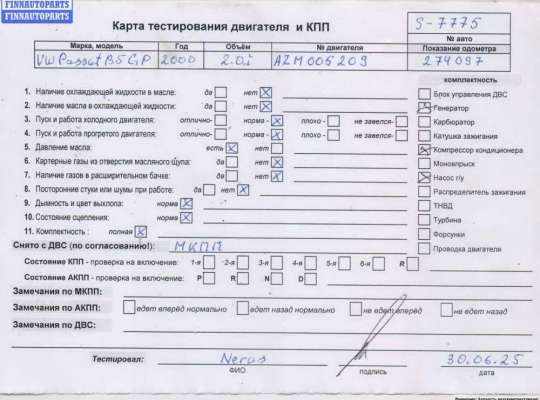 FINNAUTOPARTS
FINNAUTOPARTS
Карта тестирования двигателя и КПП
S-7775
№ авто
Марка, модель Год Объём № двигателя Показание одометра
VW Passat B5 GP 2000 2.0i AZM006209 274097
комплектность
1. Наличие охлаждающей жидкости в масле: да нет
2. Наличие масла в охлаждающей жидкости: да нет
3. Пуск и работа холодного двигателя: отлично- норма - плохо - не завелся-
4. Пуск и работа прогретого двигателя: отлично- норма - плохо - не завелся-
5. Давление масла: есть нет
6. Картерные газы из отверстия масляного щупа: да нет
7. Наличие газов в расширительном бачке: да нет
8. Посторонние стуки или шумы при работе: да нет
9. Дымность и цвет выхлопа: норма
10. Состояние сцепления: норма
11. Комплектность : полная
Блок управления ДВС
Генератор
Карбюратор
Катушка зажигания
Компрессор кондиционера
Моновпрыск
Насос г/у
Распределитель зажигания
ТНВД
Турбина
Форсунки
Проводка двигателя
Снято с ДВС (по согласованию!): МКПП
Состояние КПП - проверка на включение: 1-я 2-я 3-я 4-я 5-я 6-я R
Состояние АКПП - проверка на включение: P R N D
Замечания по МКПП:
Замечания по АКПП: едет вперёд нормально едет назад нормально не едет вперёд не едет назад
Замечания по ДВС:
Тестировал: 30.06.25
ФИО подпись дата